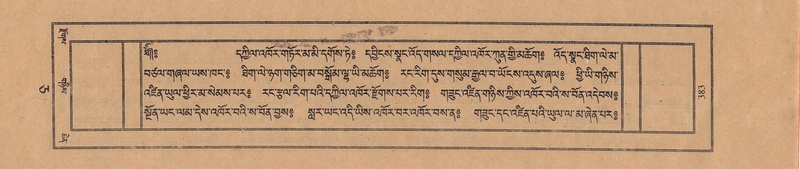 ཐཱི༔ དཀྱིལ་འཁོར་གཏོར་མ་མི་དགོས་ཏེ༔ དབྱིངས་སྣང་འོད་གསལ་དཀྱིལ་འཁོར་ཀུན་གྱི་མཆོག༔ འོད་སྣང་ཐིག་ལེ་མ་
བཙལ་གཞལ་ཡས་ཁང་༔ ཐིག་ལེ་ཉག་གཅིག་མ་བསྒོམ་ལྷ་ཡི་མཆོག༔ རང་རིག་དུས་གསུམ་རྒྱལ་བ་ཡོངས་འདུས་ཞལ༔ ཕྱི་ཡི་གཉིས་
འཛིན་ཡུལ་ཕྱིར་མ་སེམས་པར༔ རང་རྩལ་རིག་པའི་དཀྱིལ་འཁོར་རྫོགས་པར་རིག༔ གཟུང་འཛིན་གཉིས་ཀྱིས་འཁོར་བའི་ས་བོན་འདེབས༔
སྔོན་ཡང་ལམ་དེས་འཁོར་བའི་ས་བོན་བྱས༔ སླར་ཡང་འདི་ཡིས་འཁོར་བར་འཁོར་བས་ན༔ གཟུང་དང་འཛིན་པའི་ཡུལ་ལ་མ་ཞེན་པར༔
383